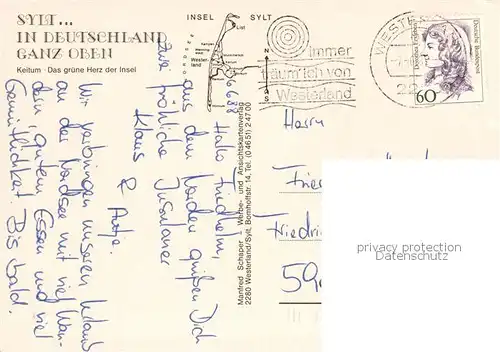 SYLT...
IN DEUTSCHLAND
GANZ OBEN
Keitum · Das grüne Herz der Insel
INSEL SYLT
List
Kampen
Wester-
land
Immer
träum' ich von
Westerland
WESTER
Deutsche Bundespost
60
6.6.88
Hallo Friedhelm,
aus dem Norden grüßen Dich
zwei fröhliche Insulaner
Klaus & Antje.
Wir verbringen unseren Urlaub
an der Nordsee mit viel Wan-
dern, gutem Essen und viel
Gemütlichkeit. Bis bald.
Manfred Schaper · Werbe- und Ansichtskartenverlag
2280 Westerland/Sylt, Bomhoffstr. 14, Tel. (0 46 51) 2 47 00
Herrn
Frie
Friedri
59
privacy protection
Datenschutz